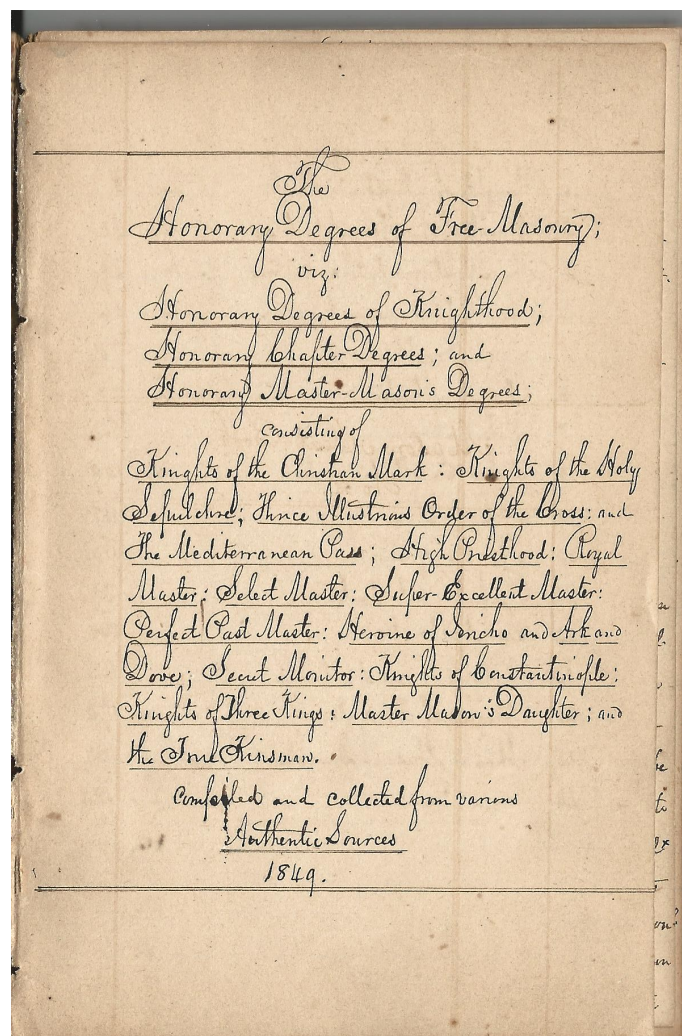 The
Honorary Degrees of Free-Masonry;
viz:
Honorary Degrees of Knighthood;
Honorary Chapter Degrees; and
Honorary Master-Mason's Degrees;
consisting of
Knights of the Christian Mark: Knights of the Holy
Sepulchre; Thrice Illustrious Order of the Cross: and
The Mediterranean Pass; High Priesthood: Royal
Master: Select Master: Super-Excellent Master:
Perfect Past Master: Heroine of Jericho and Ark and
Dove; Secret Monitor: Knights of Constantinople:
Knights of Three Kings: Master Mason's Daughter; and
the True Kinsman.
compiled and collected from various
Authentic Sources
1849.